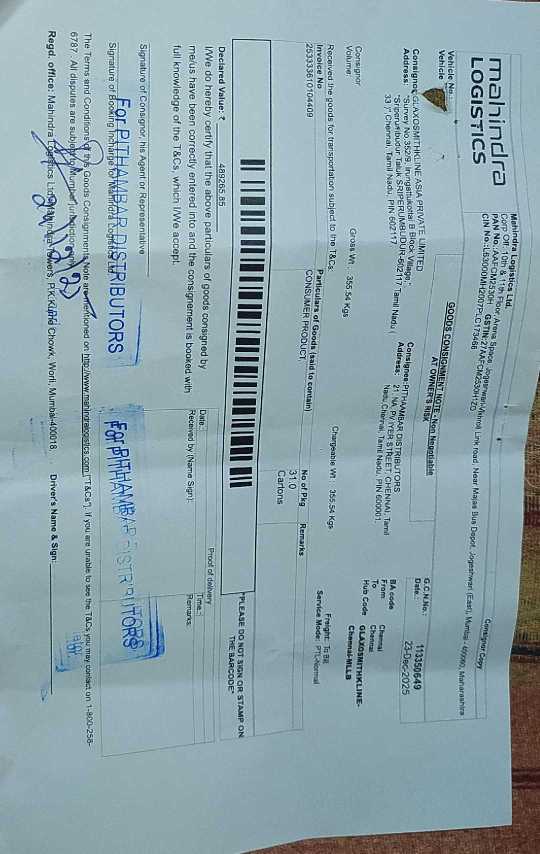 mahindra
LOGISTICS
Consignor Copy
Mahindra Logistics Ltd.
Corp Off :10th & 11th Floor Arena Space, Jogeshwari-Vikhroli Link road, Near Majas Bus Depot, Jogeshwari (East), Mumbai - 400060, Maharashtra
PAN No.: AAFCM2530H GSTIN:27AAFCM2530H1ZO
CIN No.: L63000MH2007PLC173466
GOODS CONSIGNMENT NOTE - Non Negotiable
AT OWNER'S RISK
Vehicle No.:
Vehicle
G.C.N.No.: 113350649
Date.: 23-Dec-2025
Consignor: GLAXOSMITHKLINE ASIA PRIVATE LIMITED
Address: "Survey No.352/9, Irungattukottai B Block Village,
"Sriperumbudur Taluk SRIPERUMBUDUR-602117 Tamil Nadu (
33 )", Chennai, Tamil Nadu, PIN 602117
Consignee: PITHAMBAR DISTRIBUTORS
Address: 21, NA, Py IYER STREET, CHENNAI, Tamil
Nadu, Chennai, Tamil Nadu, PIN 600001.
BA code
From Chennai
To Chennai
Hub Code GLAXOSMITHKLINE-
Chennai-MLLB
Consignor
Volume:
Gross Wt : 355.54 Kgs
Chargeable Wt : 355.54 Kgs
Freight: To Bill
Service Mode: PTL-Normal
Received the goods for transportation subject to the T&Cs:
Invoice No Particulars of Goods (said to contain) No of Pkg Remarks
2533361010​4409 CONSUMER PRODUCT 31.0
Cartons
"PLEASE DO NOT SIGN OR STAMP ON
THE BARCODE"
Declared Value: ₹ 489265.85
I/We do hereby certify that the above particulars of goods consigned by
me/us have been correctly entered into and the consignement is booked with
full knowledge of the T&Cs, which I/We accept.
Proof of delivery
Date.: Time.:
Received by (Name Sign): Remarks:
Signature of Consignor, his Agent or Representative
For PITHAMBAR DISTRIBUTORS
For PITHAMBAR DISTRIBUTORS
Signature of Booking Incharge for Mahindra Logistics Ltd
The Terms and Conditions of this Goods Consignment Note are mentioned on http://www.mahindralogistics.com ("T&Cs"). If you are unable to see the T&Cs you may contact on 1-800-258-
6787. All disputes are subject to Mumbai jurisdiction
Regd. office: Mahindra Logistics Ltd, Mahindra Towers, P.K.Kurne Chowk, Worli, Mumbai-400018. Driver's Name & Sign: